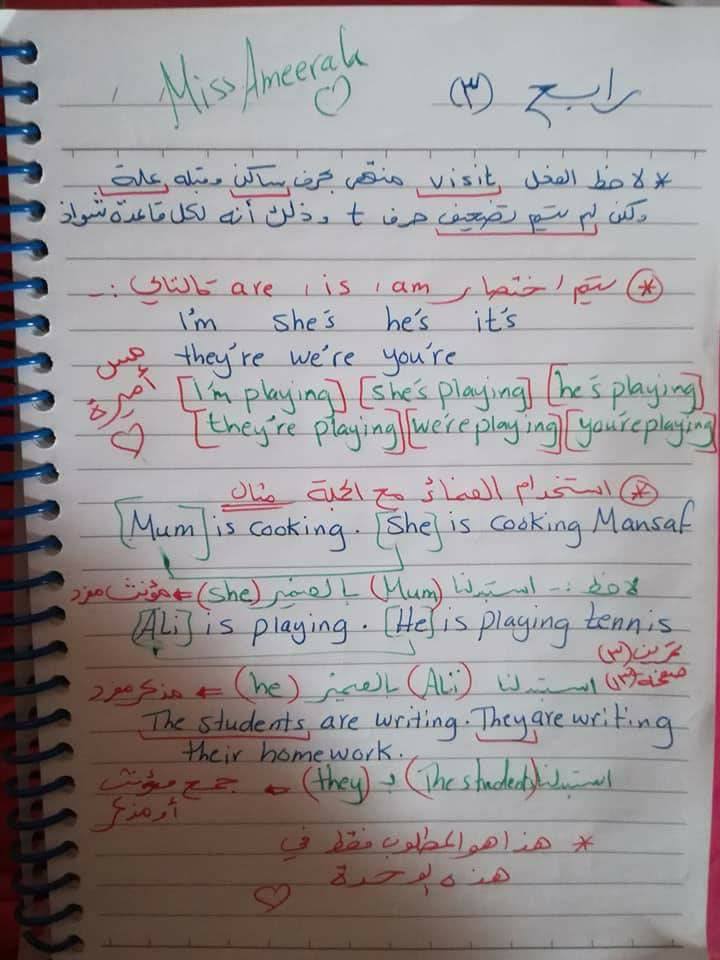 Miss Ameerah
رابع (٣)
* لاحظ الفعل visit منتهي بحرف ساكن وقبله علة
ولكن لم يتم تضعيف حرف t وذلك أنه لكل قاعدة شواذ
* يتم اختصار are ، is ، am كالتالي :-
I'm she's he's it's
they're we're you're
مس أميرة
[I'm playing] [she's playing] [he's playing]
[they're playing] [we're playing] [you're playing]
* استخدام الضمائر مع الجملة مثال
[Mum] is cooking. [She] is cooking Mansaf
لاحظ :- استبدلنا (Mum) بالضمير (she) ← مؤنث مفرد
[Ali] is playing. [He] is playing tennis
تمرين (٣)
صفحة (١٣)
استبدلنا (Ali) بالضمير (he) ← مذكر مفرد
The students are writing. They are writing
their homework.
استبدلنا (The students) بـ (they) ← جمع مؤنث
أو مذكر
* هذا هو المطلوب فقط في
هذه الوحدة